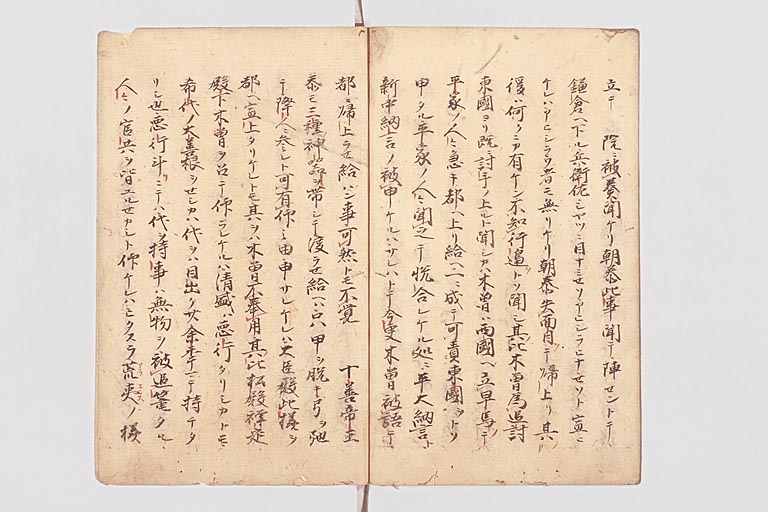 立テ 院ニ被奏聞ケリ朝泰此事聞テ陣セントテ
鎌倉ヘ下ル兵衛佐シヤツニ目ナミセソアヒシラヒナセソト宣ヒ
ケレハアヒシラウ者モ無リケリ朝泰失面目テ帰上リ其
後ハ何クニカ有ケン不知行邊トソ聞シ其比木曽為追討
東國ヨリ既ニ討手ノ上ルト聞シカハ木曽ハ西國ヘ立早馬テ
平家ノ人々急キ都ヘ上リ給ヘ一ニ成テ可責東國ヲトソ
申タル平家ノ人々聞之テ悦合レケル処ニ平大納言ト
新中納言ノ被申ケルハサレハトテ今更木曽ニ被語テ
都ヘ帰上ラセ給ハン事可然トモ不覚 十善帝王
忝モ三種神器ヲ帯シテ渡ラセ給ヘハ只甲ヲ脱キ弓ヲ弛
テ降人ニ参レト可有仰ニ由申サレケレハ大臣殿此様ヲ
都ヘ宣上タリケレトモ其ヲハ木曽不奉用其比松殿禅定
殿下木曽ヲ召テ仰ラレケルハ清盛ハ悪行タリシカトモ
希代ノ大善根ヲセシカハ代ヲハ目出ク廿余年マテ持テタ
リシ也悪行斗ニテハ代ヲ持事ハ無物ヲ被追籠タル
人々ノ官共ヲ皆ユルセカシト仰ケレハヒタスラ荒夷ノ様